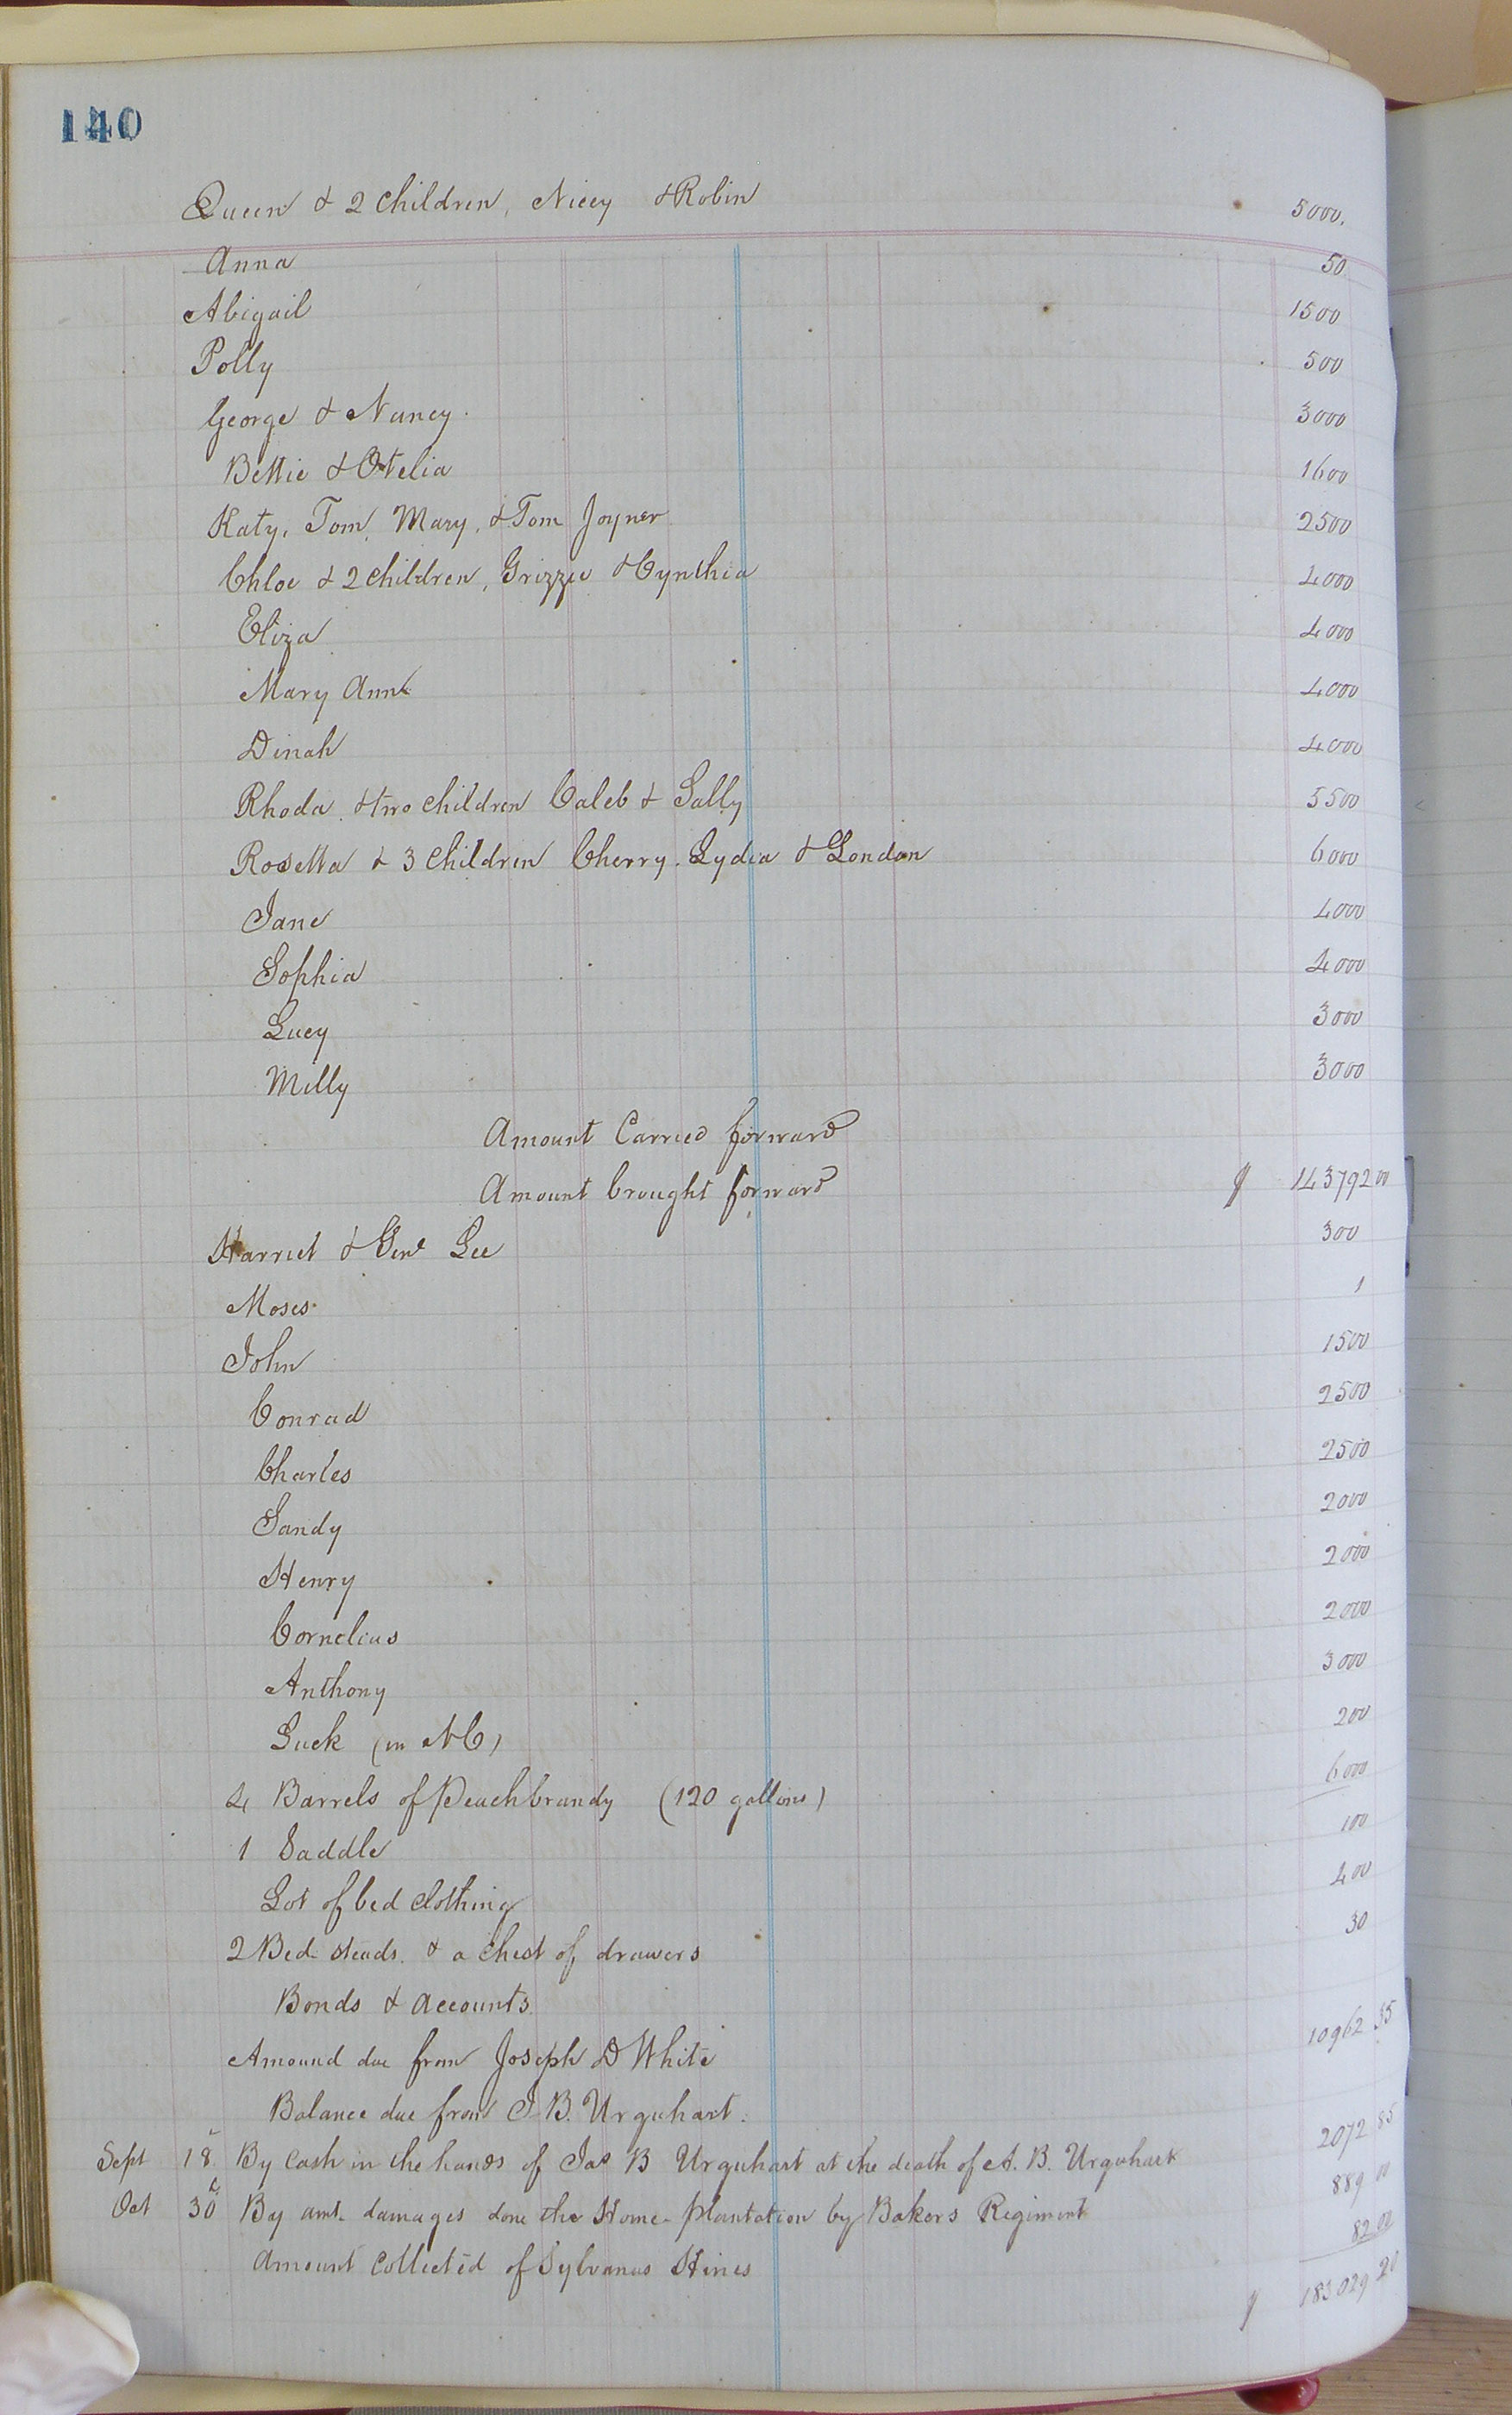 140
Queen & 2 Children, Nicey & Robin 5000.
Anna 50.
Abigail 1500
Polly 500
George & Nancy. 3000
Bettie & Otelia 1600
Katy, Tom, Mary, & Tom Joyner 2500
Chloe & 2 Children, Grizzie & Cynthia 4000
Eliza 4000
Mary Ann 4000
Dinah 4000
Rhoda & two Children Caleb & Sally 5500
Rosetta & 3 Children Cherry. Lydia & London 6000
Jane 4000
Sophia 4000
Lucy 3000
Milly 3000
Amount Carried forward
Amount brought forward $ 143792 00
Harriet & Genl Lee 300
Moses 1
John 1500
Conrad 2500
Charles 2500
Sandy 2000
Henry 2000
Cornelius 2000
Anthony 3000
Luck (in NC) 200
4 Barrels of Peach brandy (120 gallons) 6000
1 Saddle 100
Lot of bed Clothing 400
2 Bed steads. & a Chest of drawers 30
Bonds & Accounts.
Amound due from Joseph D White 10962 35
Balance due from J. B. Urquhart.
Sept 18. By Cash in the hands of Jas B Urquhart at the death of A. B. Urquhart 2072 85
Oct 30 By amt. damages done the Home-plantation by Bakers Regiment 889 00
Amount Collected of Sylvanus Hines 82.00
$ 183029 20